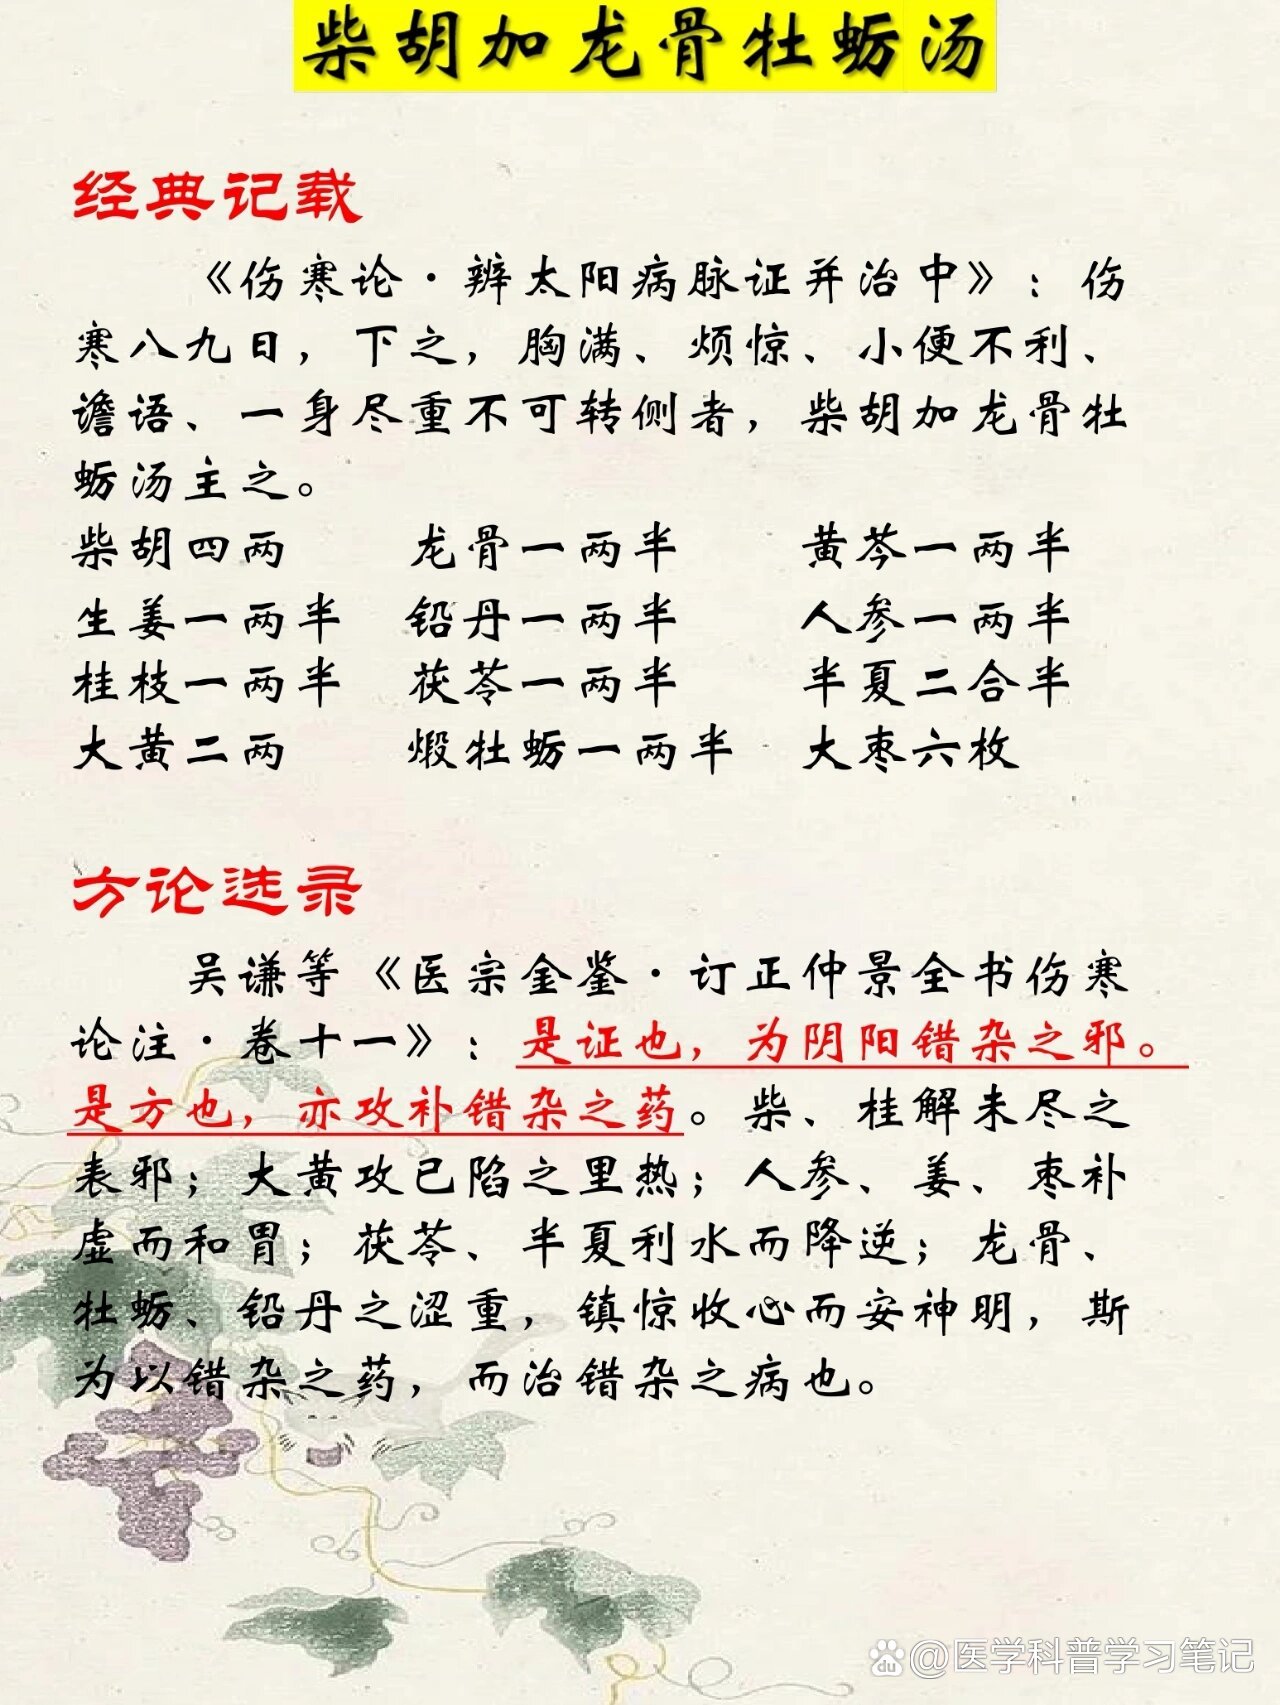 柴胡加龙骨牡蛎汤
经典记载
《伤寒论·辨太阳病脉证并治中》：伤
寒八九日，下之，胸满、烦惊、小便不利、
谵语、一身尽重不可转侧者，柴胡加龙骨牡
蛎汤主之。
柴胡四两 龙骨一两半 黄芩一两半
生姜一两半 铅丹一两半 人参一两半
桂枝一两半 茯苓一两半 半夏二合半
大黄二两 煅牡蛎一两半 大枣六枚
方论选录
吴谦等《医宗金鉴·订正仲景全书伤寒
论注·卷十一》：是证也，为阴阳错杂之邪。
是方也，亦攻补错杂之药。柴、桂解未尽之
表邪；大黄攻已陷之里热；人参、姜、枣补
虚而和胃；茯苓、半夏利水而降逆；龙骨、
牡蛎、铅丹之涩重，镇惊收心而安神明，斯
为以错杂之药，而治错杂之病也。
du @医学科普学习笔记